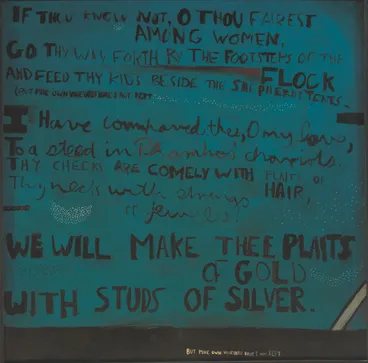 IF THOU KNOW NOT, O THOU FAIREST
AMONG WOMEN,
GO THY WAY FORTH BY THE FOOTSTEPS OF THE
FLOCK
AND FEED THY KIDS BESIDE THE SHEPHERDS TENTS.
(BUT MINE OWN VINEYARD HAVE I NOT KEPT
I Have compared thee, O my love,
To a steed in Pharaohs chariots.
THY CHEEKS ARE COMELY WITH PLAITS OF
HAIR,
Thy neck with strings
of jewels.
WE WILL MAKE THEE PLAITS
OF GOLD
WITH STUDS OF SILVER.
BUT MINE OWN VINEYARD HAVE I NOT KEPT